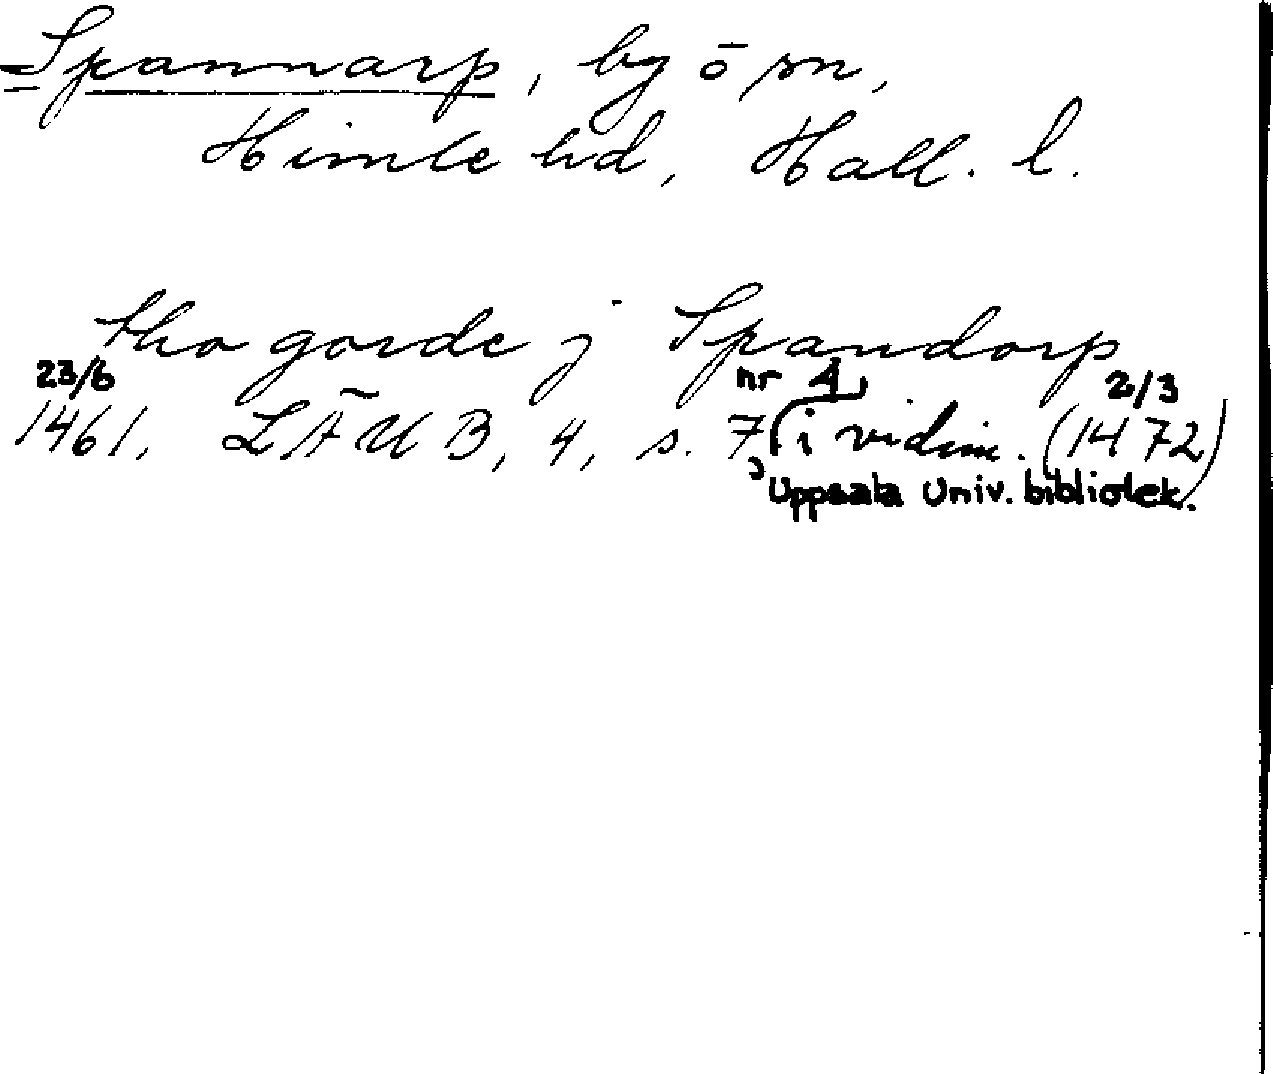 Spannarp, by o sn,
Himle hd, Hall. l.
tho gorde j Spandorp
23/6 nr 4, 2/3
1461. LÄUB, 4, s. 7, i vidim. (1472)
Uppsala Univ. bibliotek.